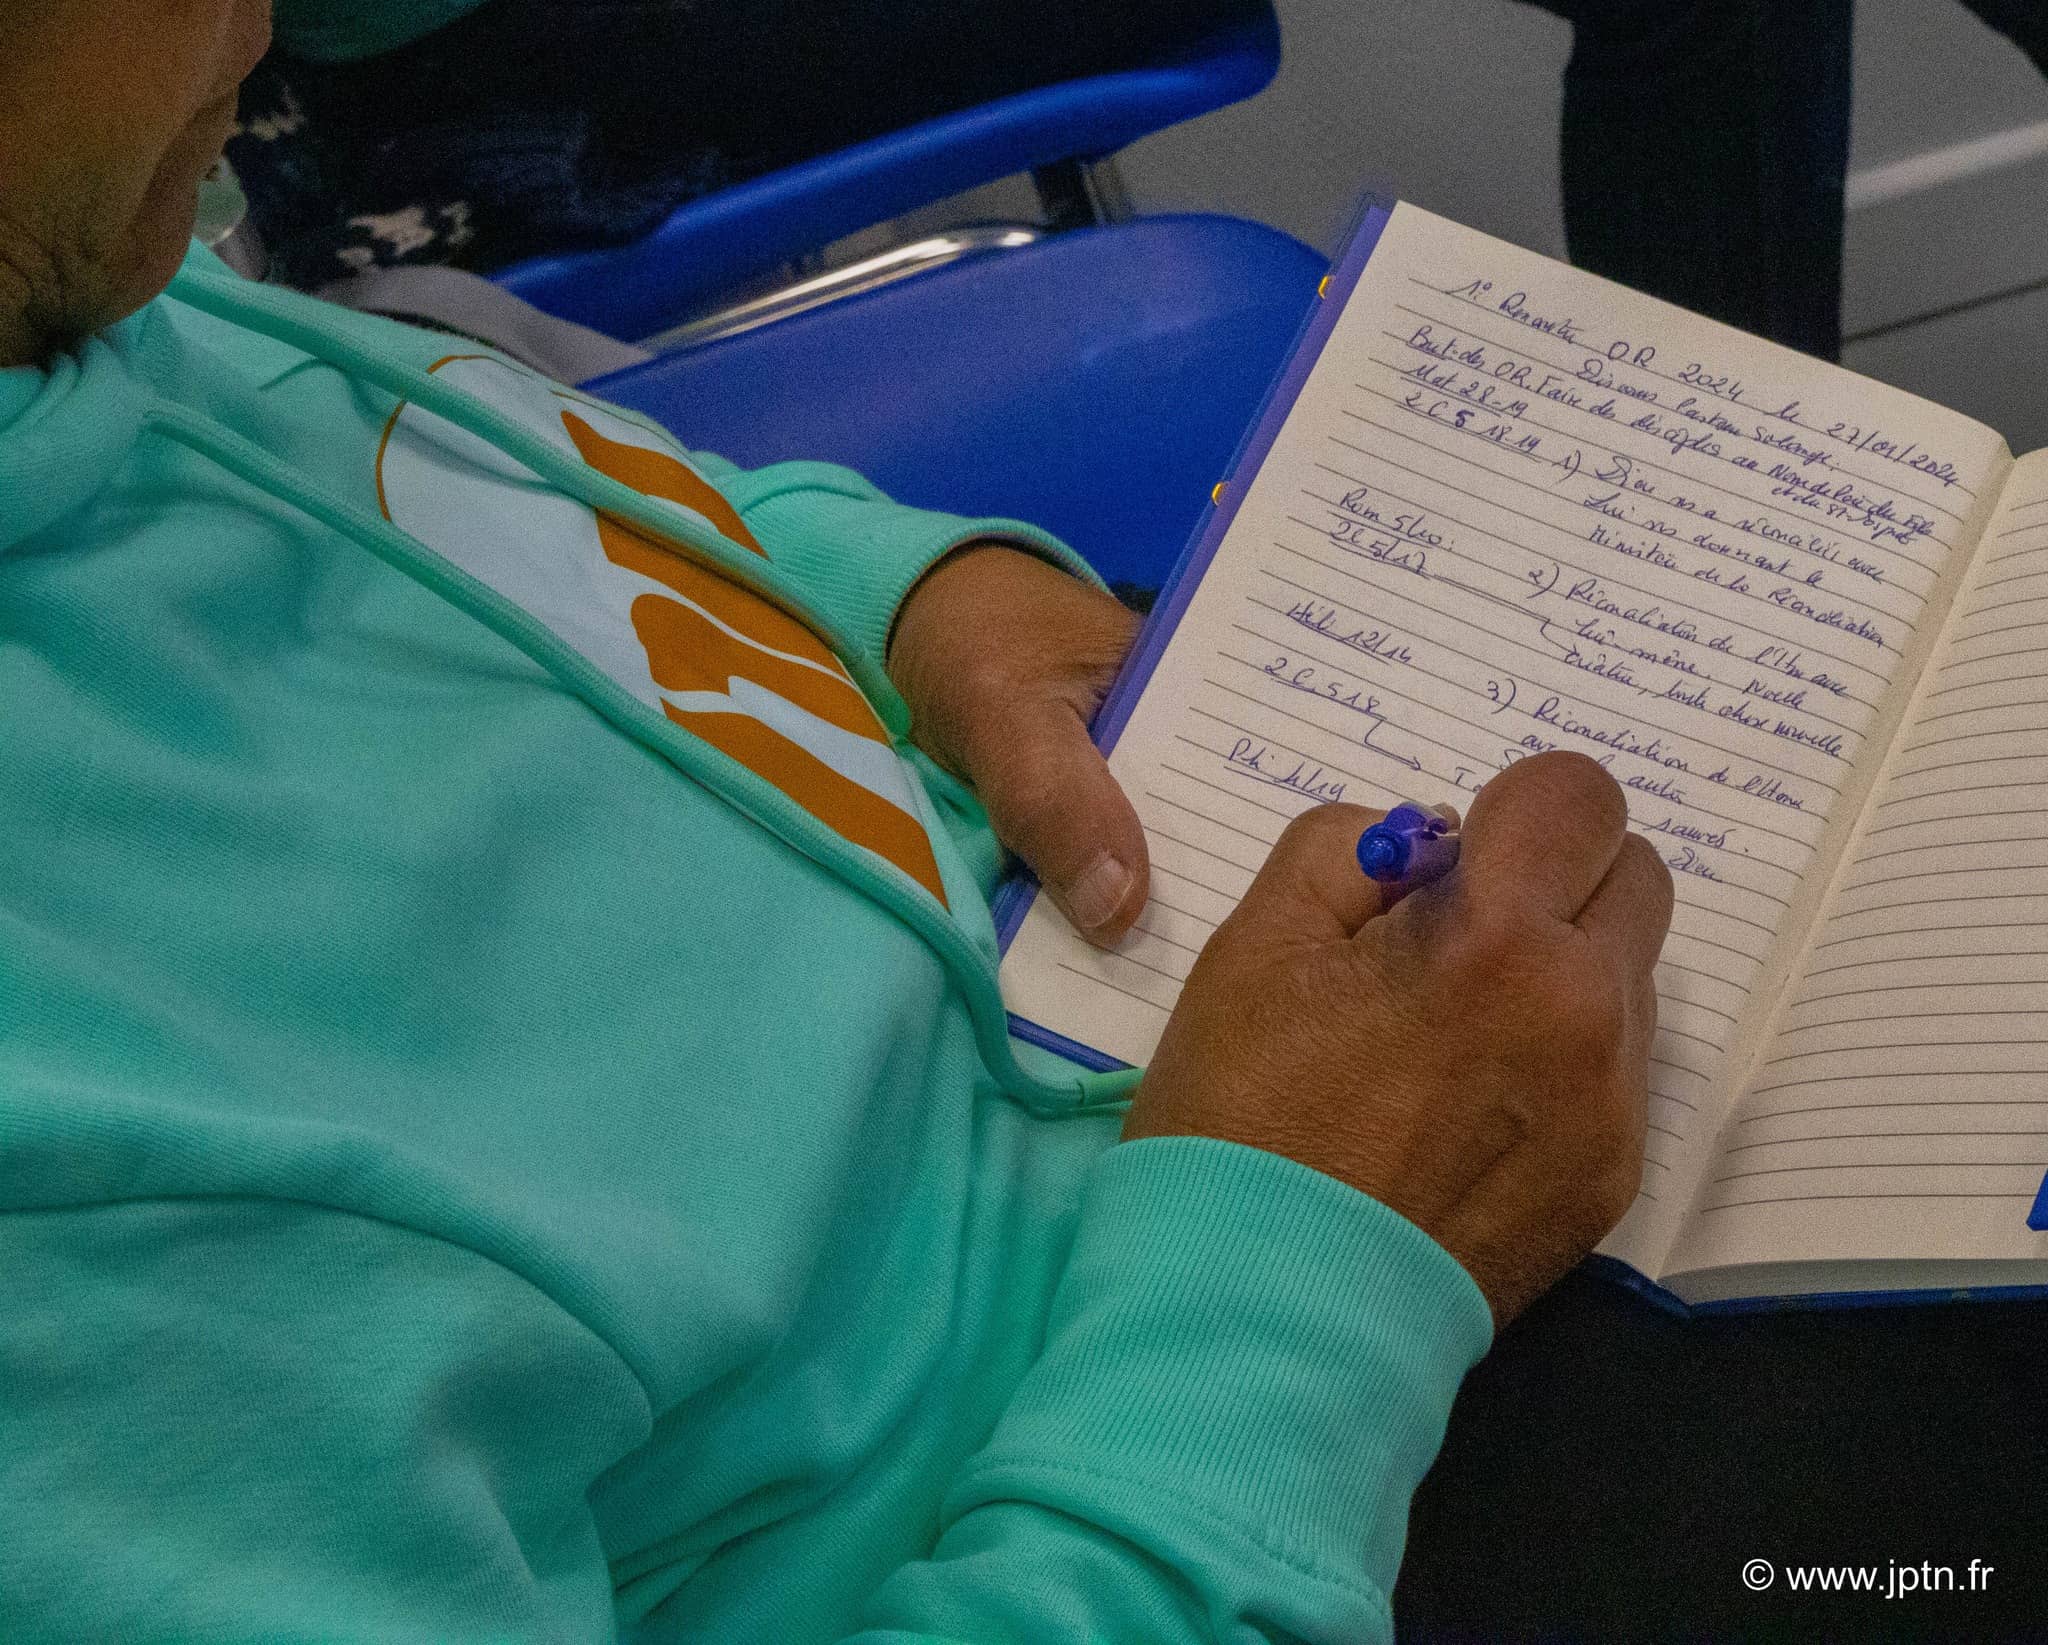 1° Rencontre OR 2024 le 27/01/2024
Discours Pasteur Solange:
But des OR. Faire des disciples au Nom du Père du Fils
et du St-Esprit
Mat 28-19
2 C 5 18-19 1) Dieu ns a réconcilié avec
Lui ns donnant le
Ministère de la Réconciliation
Rom 5/10:
2C 5/17 2) Réconciliation de l'Hom avec
Lui-même. Nvelle
créature, toute chose nouvelle
Héb 12/14
3) Réconciliation de l'Home
2 C. 5 18 avec autres
sauvés.
Phi 4/19 Dieu
© www.jptn.fr